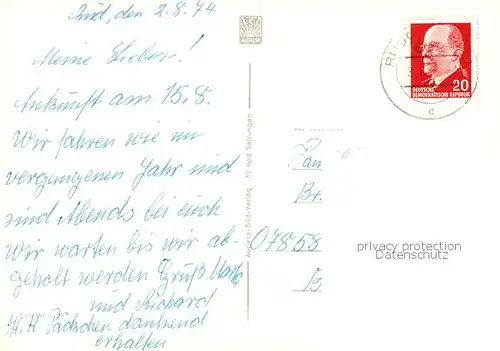 Rud, den 2.8.74
Meine Lieben!
Ankunft am 15.8.
Wir fahren wie im
vergangenen Jahr und
sind Abends bei euch
Wir warten bis wir ab-
geholt werden Gruß
und Richard
Päckchen dankend
erhalten
Bild-Verlag, Bad Salzungen
DEUTSCHE
DEMOKRATISCHE REPUBLIK
20
d
Fam
07858
privacy protection
Datenschutz